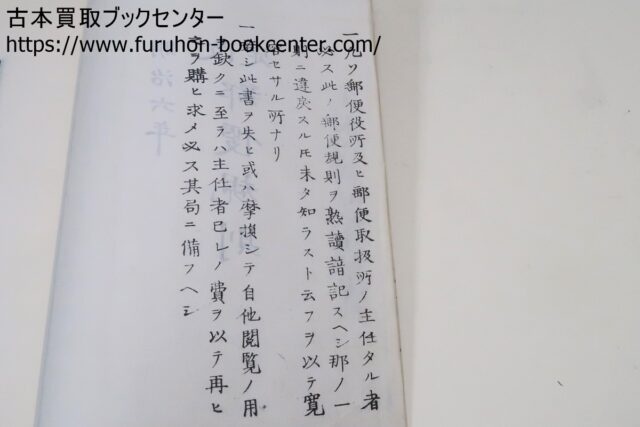 古本買取ブックセンター
https://www.furuhon-bookcenter.com/
一凡ソ郵便役所及ヒ郵便取扱所ノ主任タル者
必ス此ノ郵便規則ヲ熟讀諳記スヘシ那ノ一
則ニ違戻スルモ未タ知ラスト云フヲ以テ寛
容セサル所ナリ
一若シ此書ヲ失ヒ或ハ摩損シテ自他閲覧ノ用
ヲ欠クニ至ラハ主任者已レノ費ヲ以テ再ヒ
之ヲ購ヒ求メ必ス其局ニ備フヘシ
明治六年